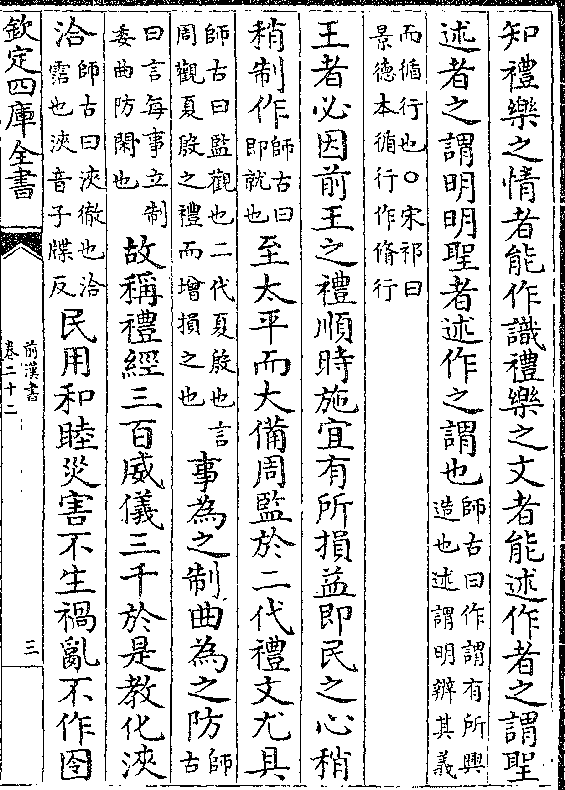 知禮樂之情者能作識禮樂之文者能述作者之謂聖
述者之謂明明聖者述作之謂也師古曰作謂有所興造也述謂明辨其義
而循行也○宋祁曰景德本循行作脩行
王者必因前王之禮順時施宜有所損益即民之心稍
稍制作師古曰即就也至太平而大備周監於二代禮文尤具
師古曰監觀也二代夏殷也言周觀夏殷之禮而增損之也事為之制曲為之防師古
曰言每事立制委曲防閑也故稱禮經三百威儀三千於是教化浹
洽師古曰浹徹也洽霑也浹音子牒反民用和睦災害不生禍亂不作囹
欽定四庫全書
前漢書
卷二十二
三